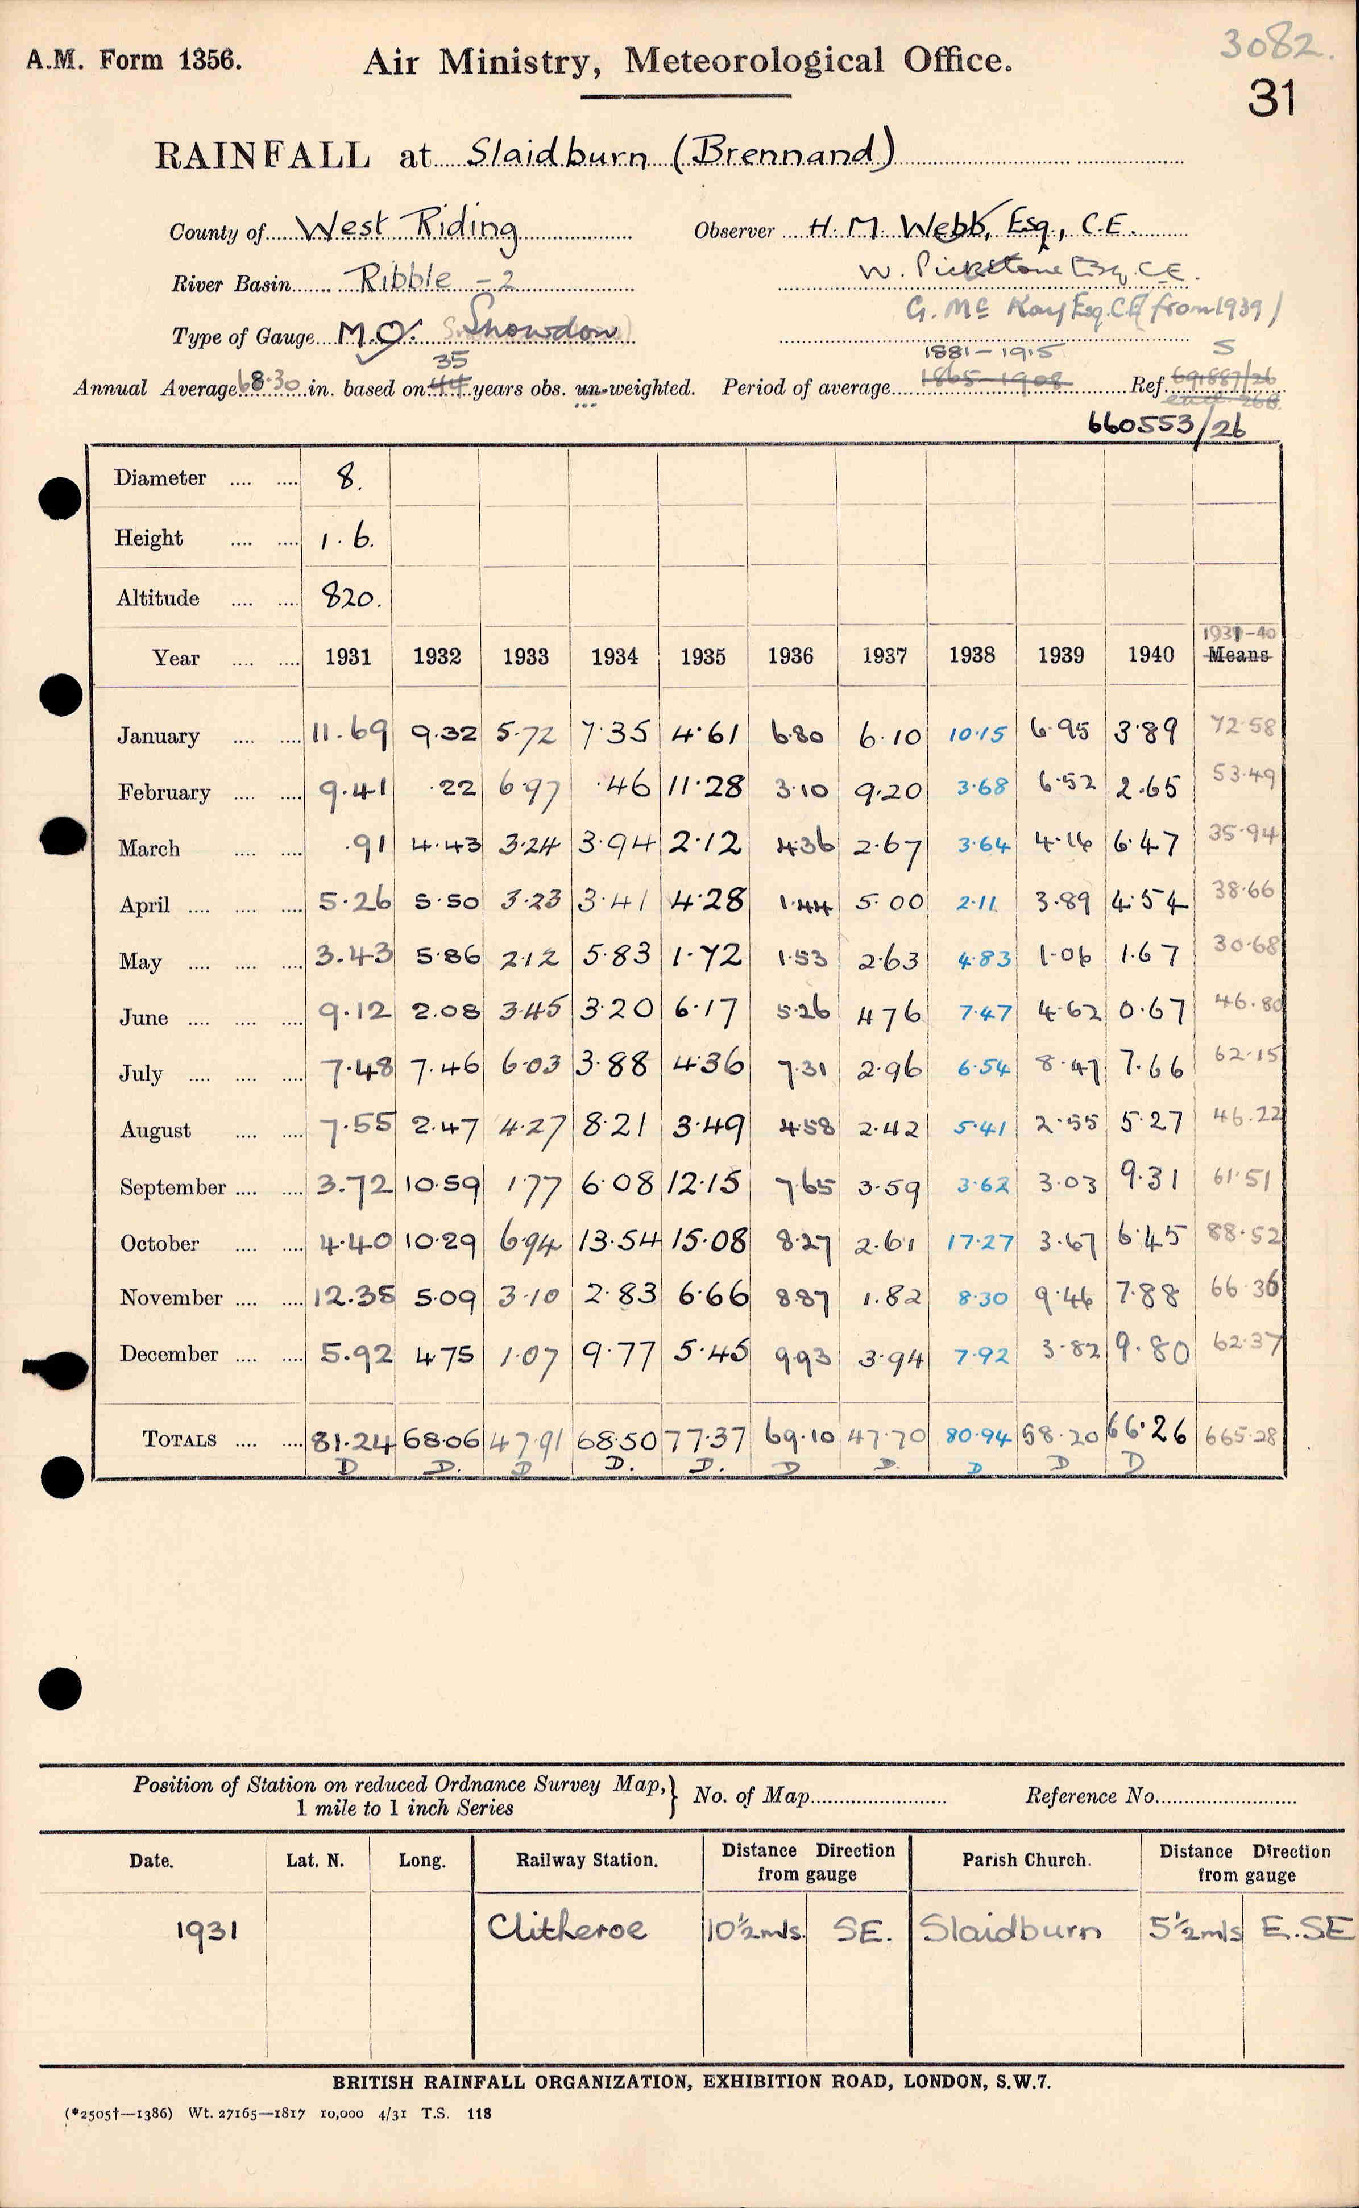 A.M. Form 1356.
Air Ministry, Meteorological Office.
3082.
31
RAINFALL at Slaidburn (Brennand)
County of West Riding Observer H. M. Webb, Esq., C.E.
River Basin Ribble - 2 W. Pickstone Esq. C.E.
G. Mc Kay Esq. C.E (from 1939)
Type of Gauge M.O. Snowdon
35 1881 - 1915 S
Annual Average 68.30 in. based on 44 years obs. un-weighted. Period of average 1865-1908 Ref. 691887/26
660553/26
Diameter 8.
Height 1. 6.
Altitude 820.
1931-40
Year 1931 1932 1933 1934 1935 1936 1937 1938 1939 1940 Means
January 11.69 9.32 5.72 7.35 4.61 6.80 6.10 10.15 6.95 3.89 72.58
February 9.41 .22 6.97 .46 11.28 3.10 9.20 3.68 6.52 2.65 53.49
March .91 4.43 3.24 3.94 2.12 4.36 2.67 3.64 4.16 6.47 35.94
April 5.26 5.50 3.23 3.41 4.28 1.44 5.00 2.11 3.89 4.54 38.66
May 3.43 5.86 2.12 5.83 1.72 1.53 2.63 4.83 1.06 1.67 30.68
June 9.12 2.08 3.45 3.20 6.17 5.26 4.76 7.47 4.62 0.67 46.80
July 7.48 7.46 6.03 3.88 4.36 7.31 2.96 6.54 8.47 7.66 62.15
August 7.55 2.47 4.27 8.21 3.49 4.58 2.42 5.41 2.55 5.27 46.22
September 3.72 10.59 1.77 6.08 12.15 7.65 3.59 3.62 3.03 9.31 61.51
October 4.40 10.29 6.94 13.54 15.08 8.27 2.61 17.27 3.67 6.45 88.52
November 12.35 5.09 3.10 2.83 6.66 8.87 1.82 8.30 9.46 7.88 66.36
December 5.92 4.75 1.07 9.77 5.45 9.93 3.94 7.92 3.82 9.80 62.37
TOTALS 81.24 68.06 47.91 68.50 77.37 69.10 47.70 80.94 58.20 66.26 665.28
D D. D D. D. D D. D D D
Position of Station on reduced Ordnance Survey Map, } No. of Map Reference No.
1 mile to 1 inch Series
Date. Lat. N. Long. Railway Station. Distance Direction from gauge Parish Church. Distance Direction from gauge
1931 Clitheroe 10½ mls. SE. Slaidburn 5½ mls E.SE
BRITISH RAINFALL ORGANIZATION, EXHIBITION ROAD, LONDON, S.W.7.
(*2505†—1386) Wt. 27165—1817 10,000 4/31 T.S. 118